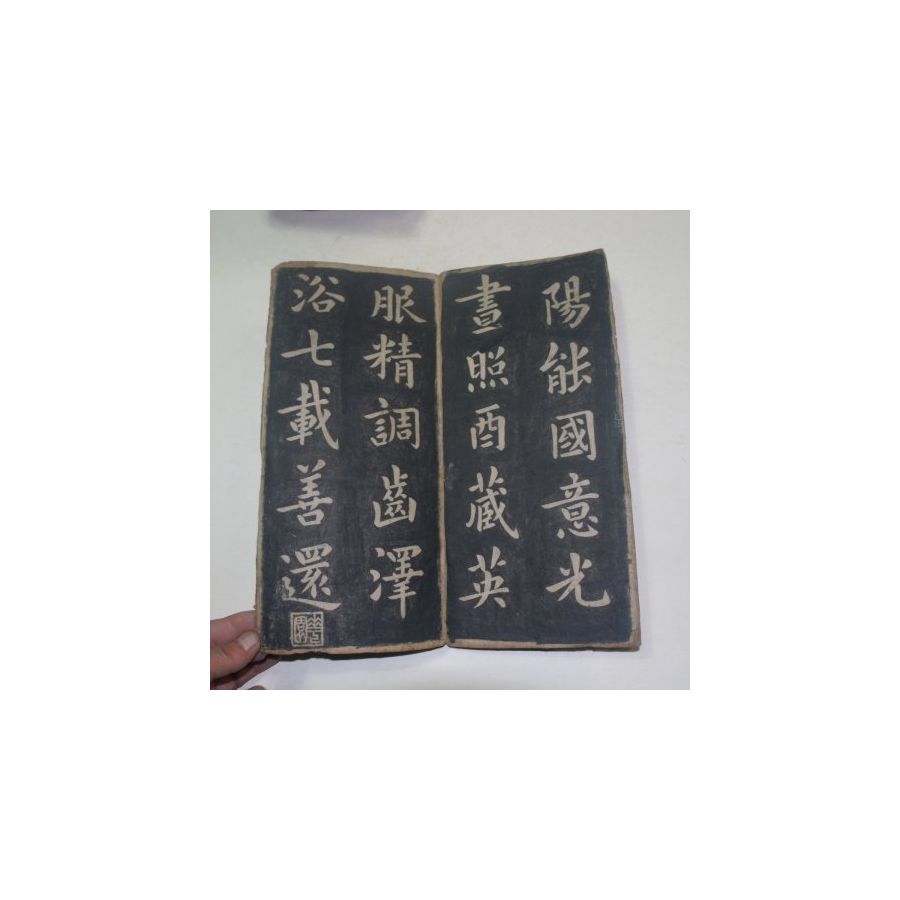 陽能國意光
晝照酉蔵英
眼精調齒澤
浴七載善還